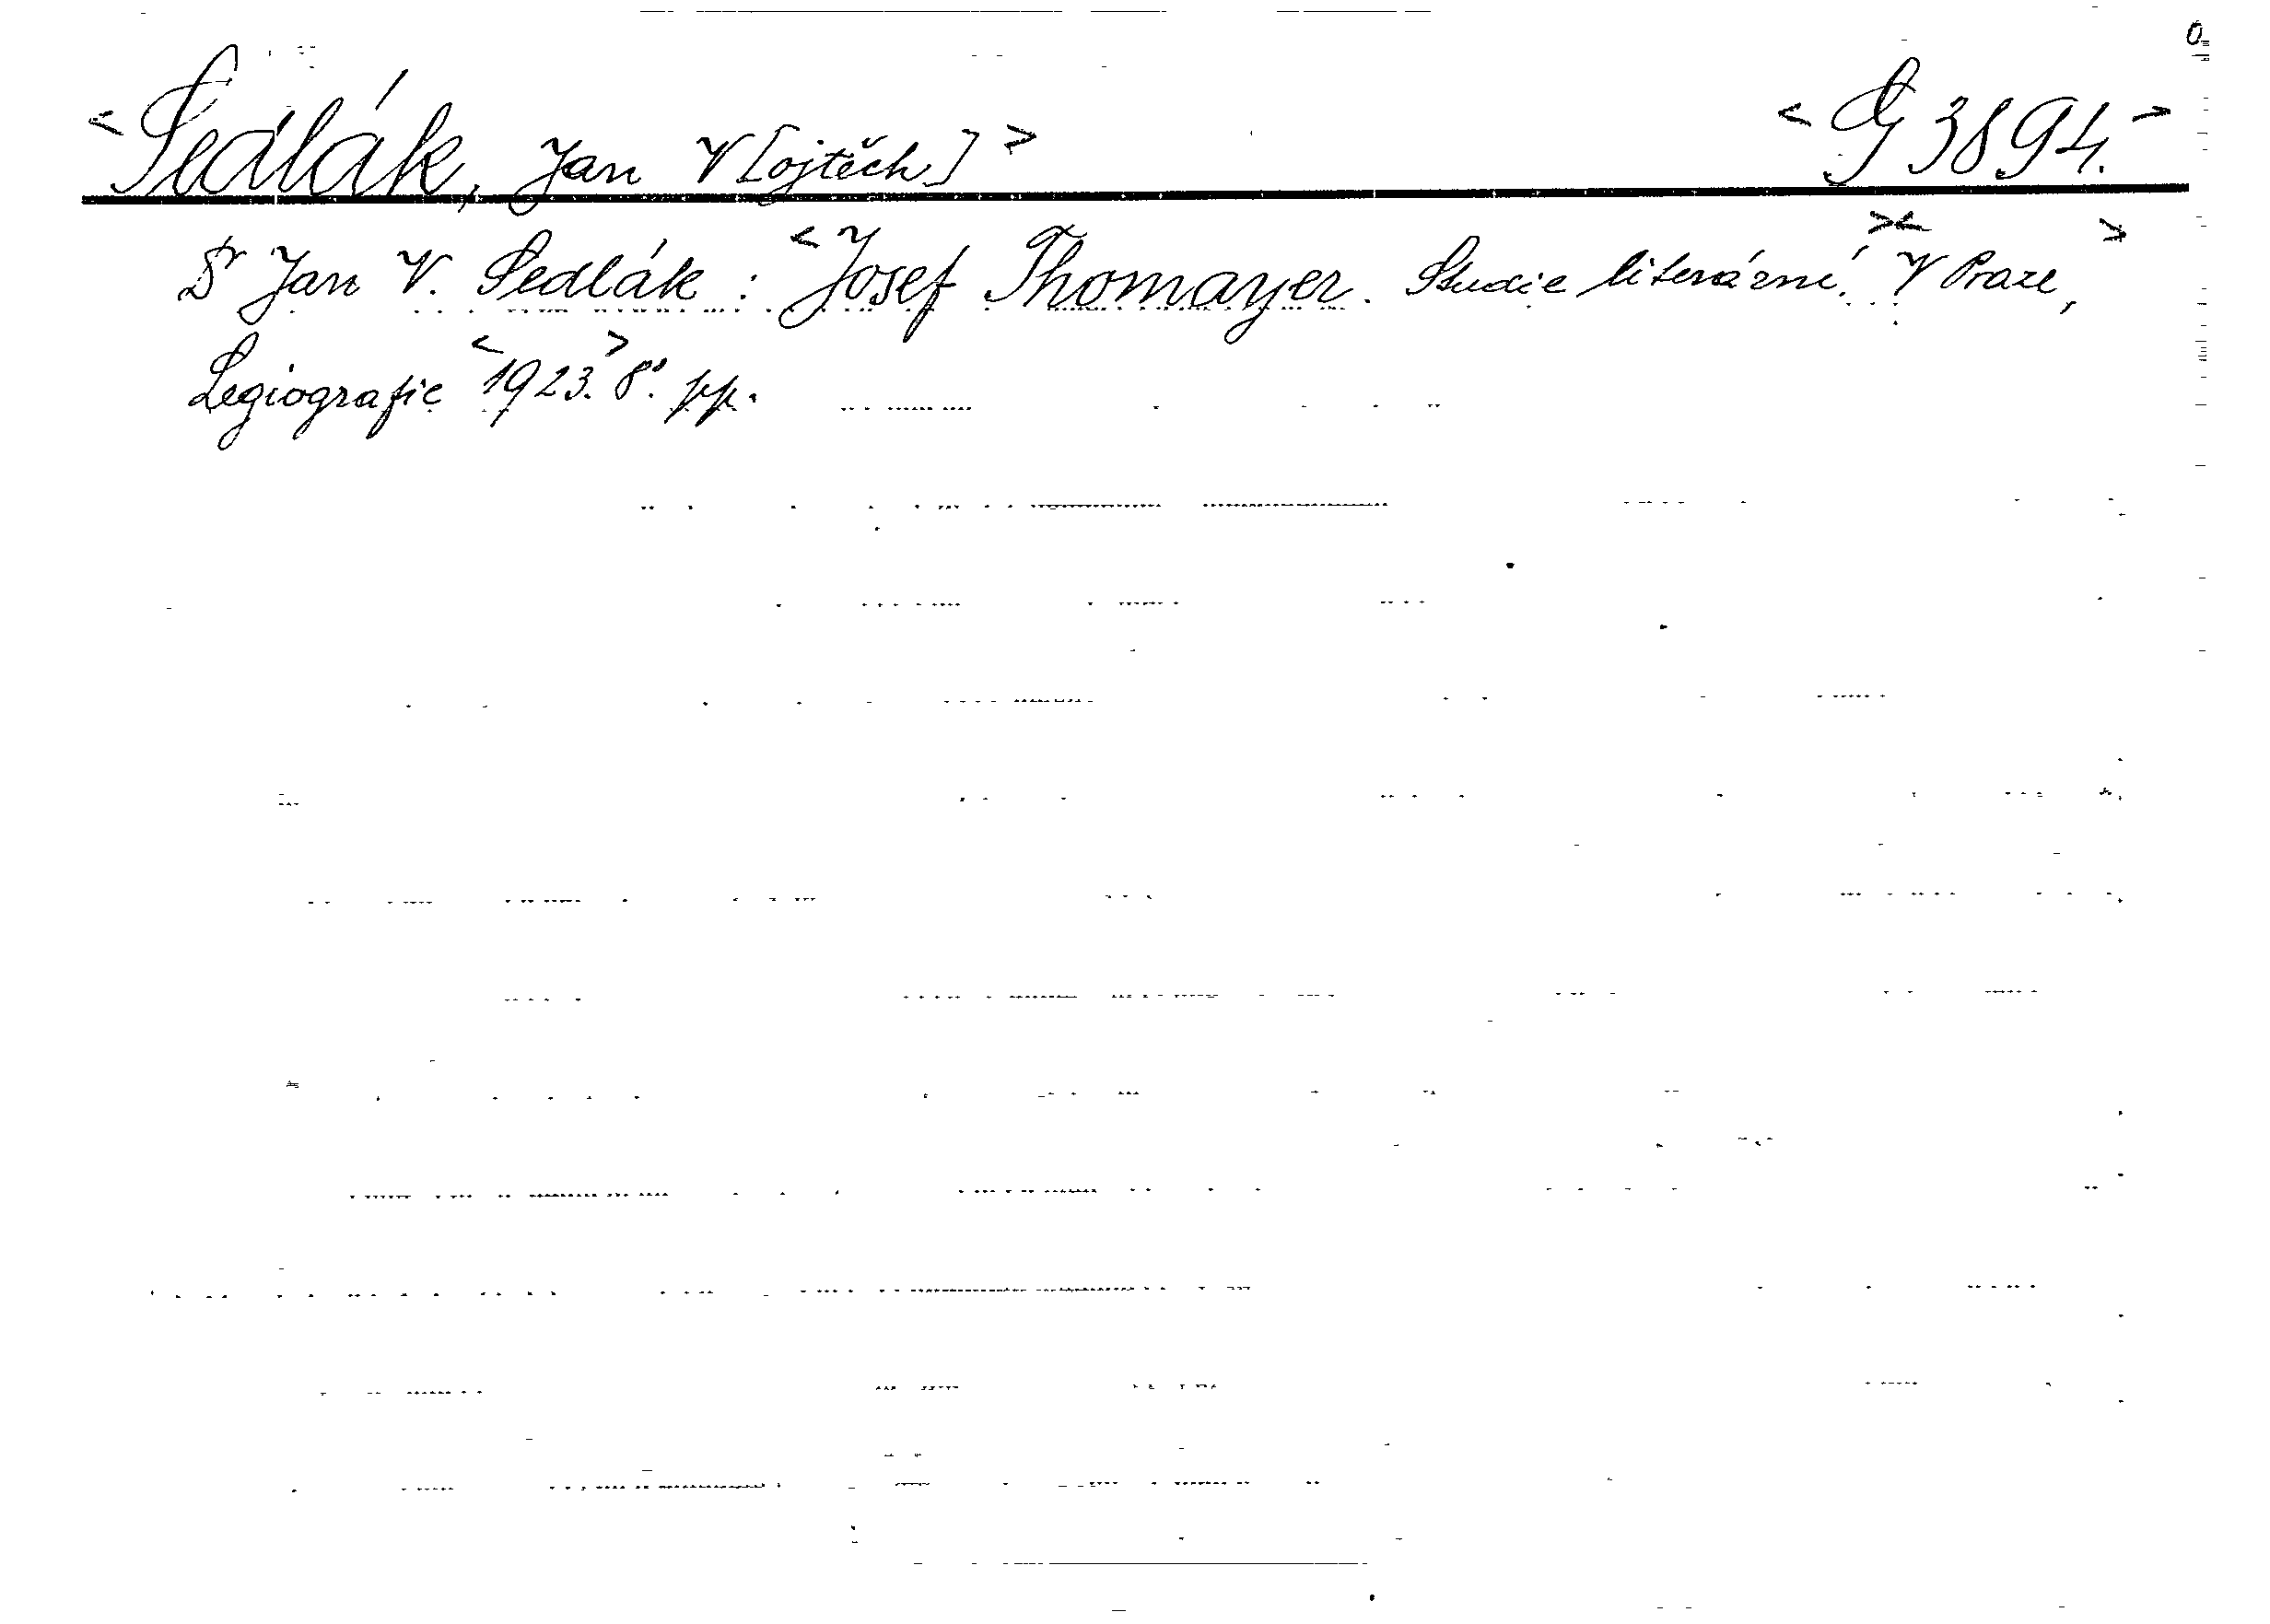 <Sedlák, Jan V[ojtěch]> <G 3894.>
Dr Jan V. Sedlák: <Josef Thomayer. Studie literární.>< V Praze,>
Legiografie <1923.> 8°. pp.